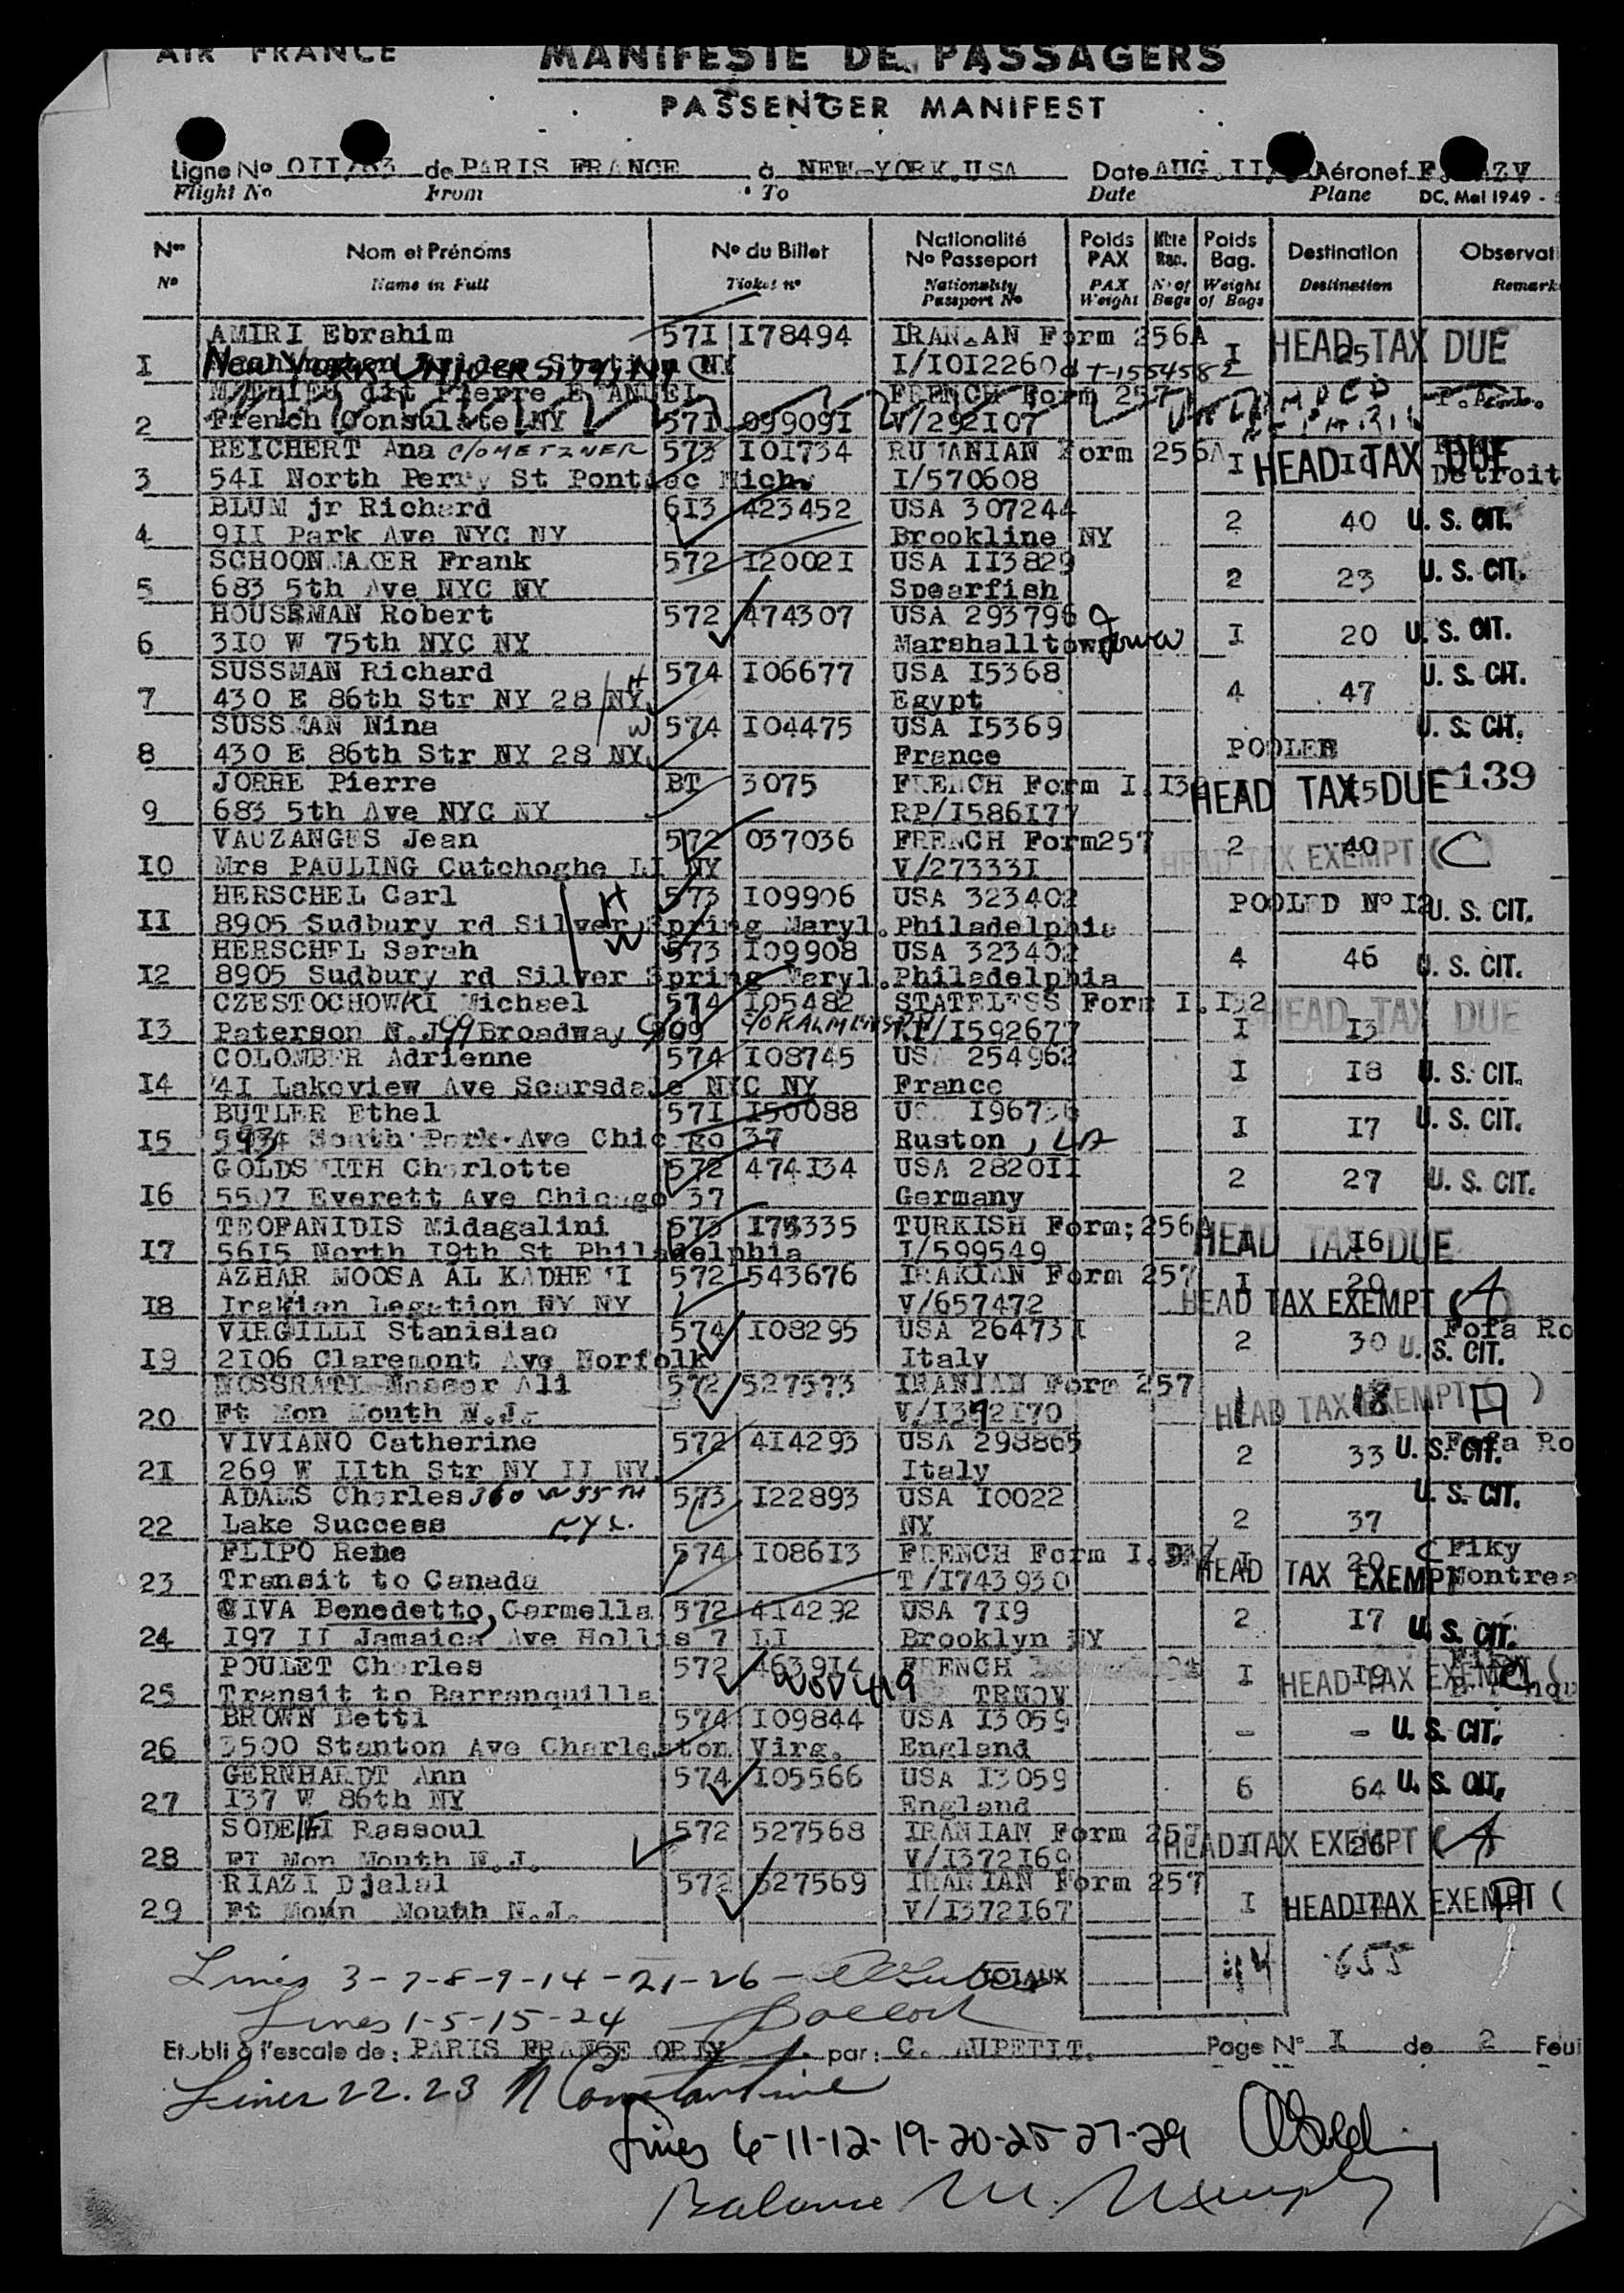 AIR FRANCE
MANIFESTE DE PASSAGERS
PASSENGER MANIFEST
Ligne No OII/63 de PARIS FRANCE à NEW-YORK.USA Date AUG.II, Aéronef F. AZV
Flight No From To Date Plane DC. Mai 1949 -
Nos Nom et Prénoms No du Billet Nationalité No Passeport Poids PAX Nbre Bag. Poids Bag. Destination Observati
No Name in Full Ticket no Nationality Passport No PAX Weight No of Bags Weight of Bags Destination Remark
AMIRI Ebrahim 57I I78494 IRANIAN Form 256A I 25 HEAD TAX DUE
I NEW YORK UNIVERSITY, NY C I/IOI2260 T-1554582
dit Pierre FRENCH Form 257 P.A.I.
2 French Consulate NY 57I 09909I V/292I07
REICHERT Ana C/O METZNER 573 I0I734 RUMANIAN Form 256A I HEAD TAX DUE
3 54I North Perry St Pontiac Mich. I/570608 Detroit
BLUM jr Richard 6I3 423452 USA 307244 2 40 U. S. CIT.
4 9II Park Ave NYC NY Brookline NY
SCHOONMAKER Frank 572 I2002I USA II3829 2 23 U. S. CIT.
5 683 5th Ave NYC NY Spearfish
HOUSEMAN Robert 572 474307 USA 293796 I 20 U. S. CIT.
6 3I0 W 75th NYC NY Marshalltown Iowa
SUSSMAN Richard H 574 I06677 USA I5368 4 47 U. S. CIT.
7 430 E 86th Str NY 28 NY Egypt
SUSSMAN Nina W 574 I04475 USA I5369 U. S. CIT.
8 430 E 86th Str NY 28 NY France POOLED
JORRE Pierre BT 3075 FRENCH Form I.I3 HEAD TAX DUE 139
9 683 5th Ave NYC NY RP/I586I77
VAUZANGES Jean 572 037036 FRENCH Form257 2 40 HEAD TAX EXEMPT (C)
I0 Mrs PAULING Cutchoghe LI NY V/27333I
HERSCHEL Carl H 573 I09906 USA 323402 POOLED No I2 U. S. CIT.
II 8905 Sudbury rd Silver Spring Maryl. Philadelphia
HERSCHEL Sarah W 573 I09908 USA 323402 4 46 U. S. CIT.
I2 8905 Sudbury rd Silver Spring Maryl. Philadelphia
CZESTOCHOWKI Michael 574 I05482 STATELESS Form I.I32 I I3 HEAD TAX DUE
I3 Paterson N.J 99 Broadway I592677
COLOMBER Adrienne 574 I08745 USA 254962 I I8 U. S. CIT.
I4 4I Lakeview Ave Scarsdale NYC NY France
BUTLER Ethel 57I I50088 I I7 U. S. CIT.
I5 5934 South Park Ave Chicago 37 Ruston, LA
GOLDSMITH Charlotte 572 474I34 USA 2820II 2 27 U. S. CIT.
I6 5507 Everett Ave Chicago 37 Germany
TEOFANIDIS Midagalini 573 TURKISH Form; 256A I I6 HEAD TAX DUE
I7 56I5 North I9th St Philadelphia I/599549
AZHAR MOOSA AL KADHEMI 572 543676 IRAKIAN Form 257 I 20
I8 Irakian Legation NY NY V/657472 HEAD TAX EXEMPT (A)
VIRGILLI Stanislao 574 I08295 USA 26473I 2 30 U. S. CIT. Fofa Ro
I9 2I06 Claremont Ave Norfolk Italy
NOSSRATI Nasser Ali 572 527573 IRANIAN Form 257 I 18 HEAD TAX EXEMPT (A)
20 Ft Mon Mouth N.J. V/I372I70
VIVIANO Catherine 572 4I4293 USA 298865 2 33 U. S. CIT. Fofa Ro
2I 269 W IIth Str NY II NY Italy
ADAMS Charles 360 W 55 TH 573 I22893 USA I0022 2 37 U. S. CIT.
22 Lake Success NYC. NY
FLIPO Rene 574 I086I3 FRENCH Form I. I 20 Fiky
23 Transit to Canada T/I743930 HEAD TAX EXEMPT Montrea
CIVA Benedetto, Carmella 572 4I4292 USA 7I9 2 I7 U. S. CIT.
24 I97 II Jamaica Ave Hollis 7 LI Brooklyn NY
POULET Charles 572 4639I4 FRENCH I I9 HEAD TAX EXEMPT (
25 Transit to Barranquilla TRNOV
BROWN Betti 574 I09844 USA I3059 - - U. S. CIT.
26 3500 Stanton Ave Charleston Virg. England
GERNHARDT Ann 574 I05566 USA I3059 6 64 U. S. CIT.
27 I37 W 86th NY England
SODEIFI Rassoul 572 527568 IRANIAN Form 257 I 26 HEAD TAX EXEMPT (A
28 Ft Mon Mouth N.J. V/I372I69
RIAZI Djalal 572 527569 IRANIAN Form 257
29 Ft Mon Mouth N.J. V/I372I67 I HEAD TAX EXEMPT (
Lines 3-7-8-9-14-21-26- TOTAUX 44 655
Lines 1-5-15-24
Etabli à l'escale de: PARIS FRANCE ORLY par: C. AUPETIT. Page No I de 2 Feui
Lines 22.23 Constantine
Lines 6-11-12-19-20-25-27-29
Balance M. Murphy